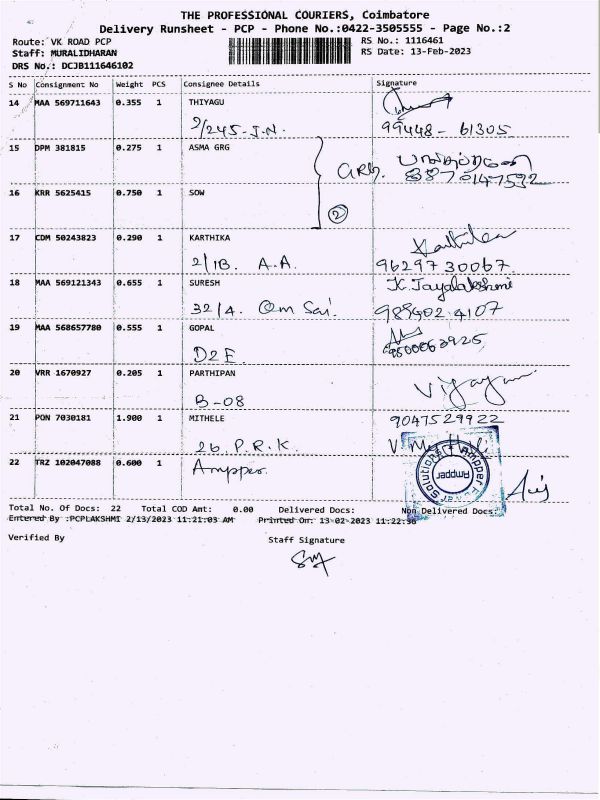 THE PROFESSIONAL COURIERS, Coimbatore
Delivery Runsheet - PCP - Phone No.:0422-3505555 - Page No.:2
Route: VK ROAD PCP RS No.: 1116461
Staff: MURALIDHARAN RS Date: 13-Feb-2023
DRS No.: DCJB111646102
S No Consignment No Weight PCS Consignee Details Signature
14 MAA 569711643 0.355 1 THIYAGU
9/245-J.N. 99448-61305
15 DPM 381815 0.275 1 ASMA GRG
GRG. 8870147592
16 KRR 5625415 0.750 1 SOW
2
17 CDM 50243823 0.290 1 KARTHIKA Karthika
2/1B. A.A. 9629730067
18 MAA 569121343 0.655 1 SURESH K. Jayalakshmi
32/4. Om Sai. 9894024107
19 MAA 568657780 0.555 1 GOPAL
D2E 9500063925
20 VRR 1670927 0.205 1 PARTHIPAN
B-08
21 PON 7030181 1.900 1 MITHELE 9047529922
26. P.R.K.
22 TRZ 102047088 0.600 1 Ampper
Ampper Power Solutions
Ampper
Total No. Of Docs: 22 Total COD Amt: 0.00 Delivered Docs: Non Delivered Docs:
Entered By :PCPLAKSHMI 2/13/2023 11:21:03 AM Printed On: 13-02-2023 11:22:36
Verified By Staff Signature